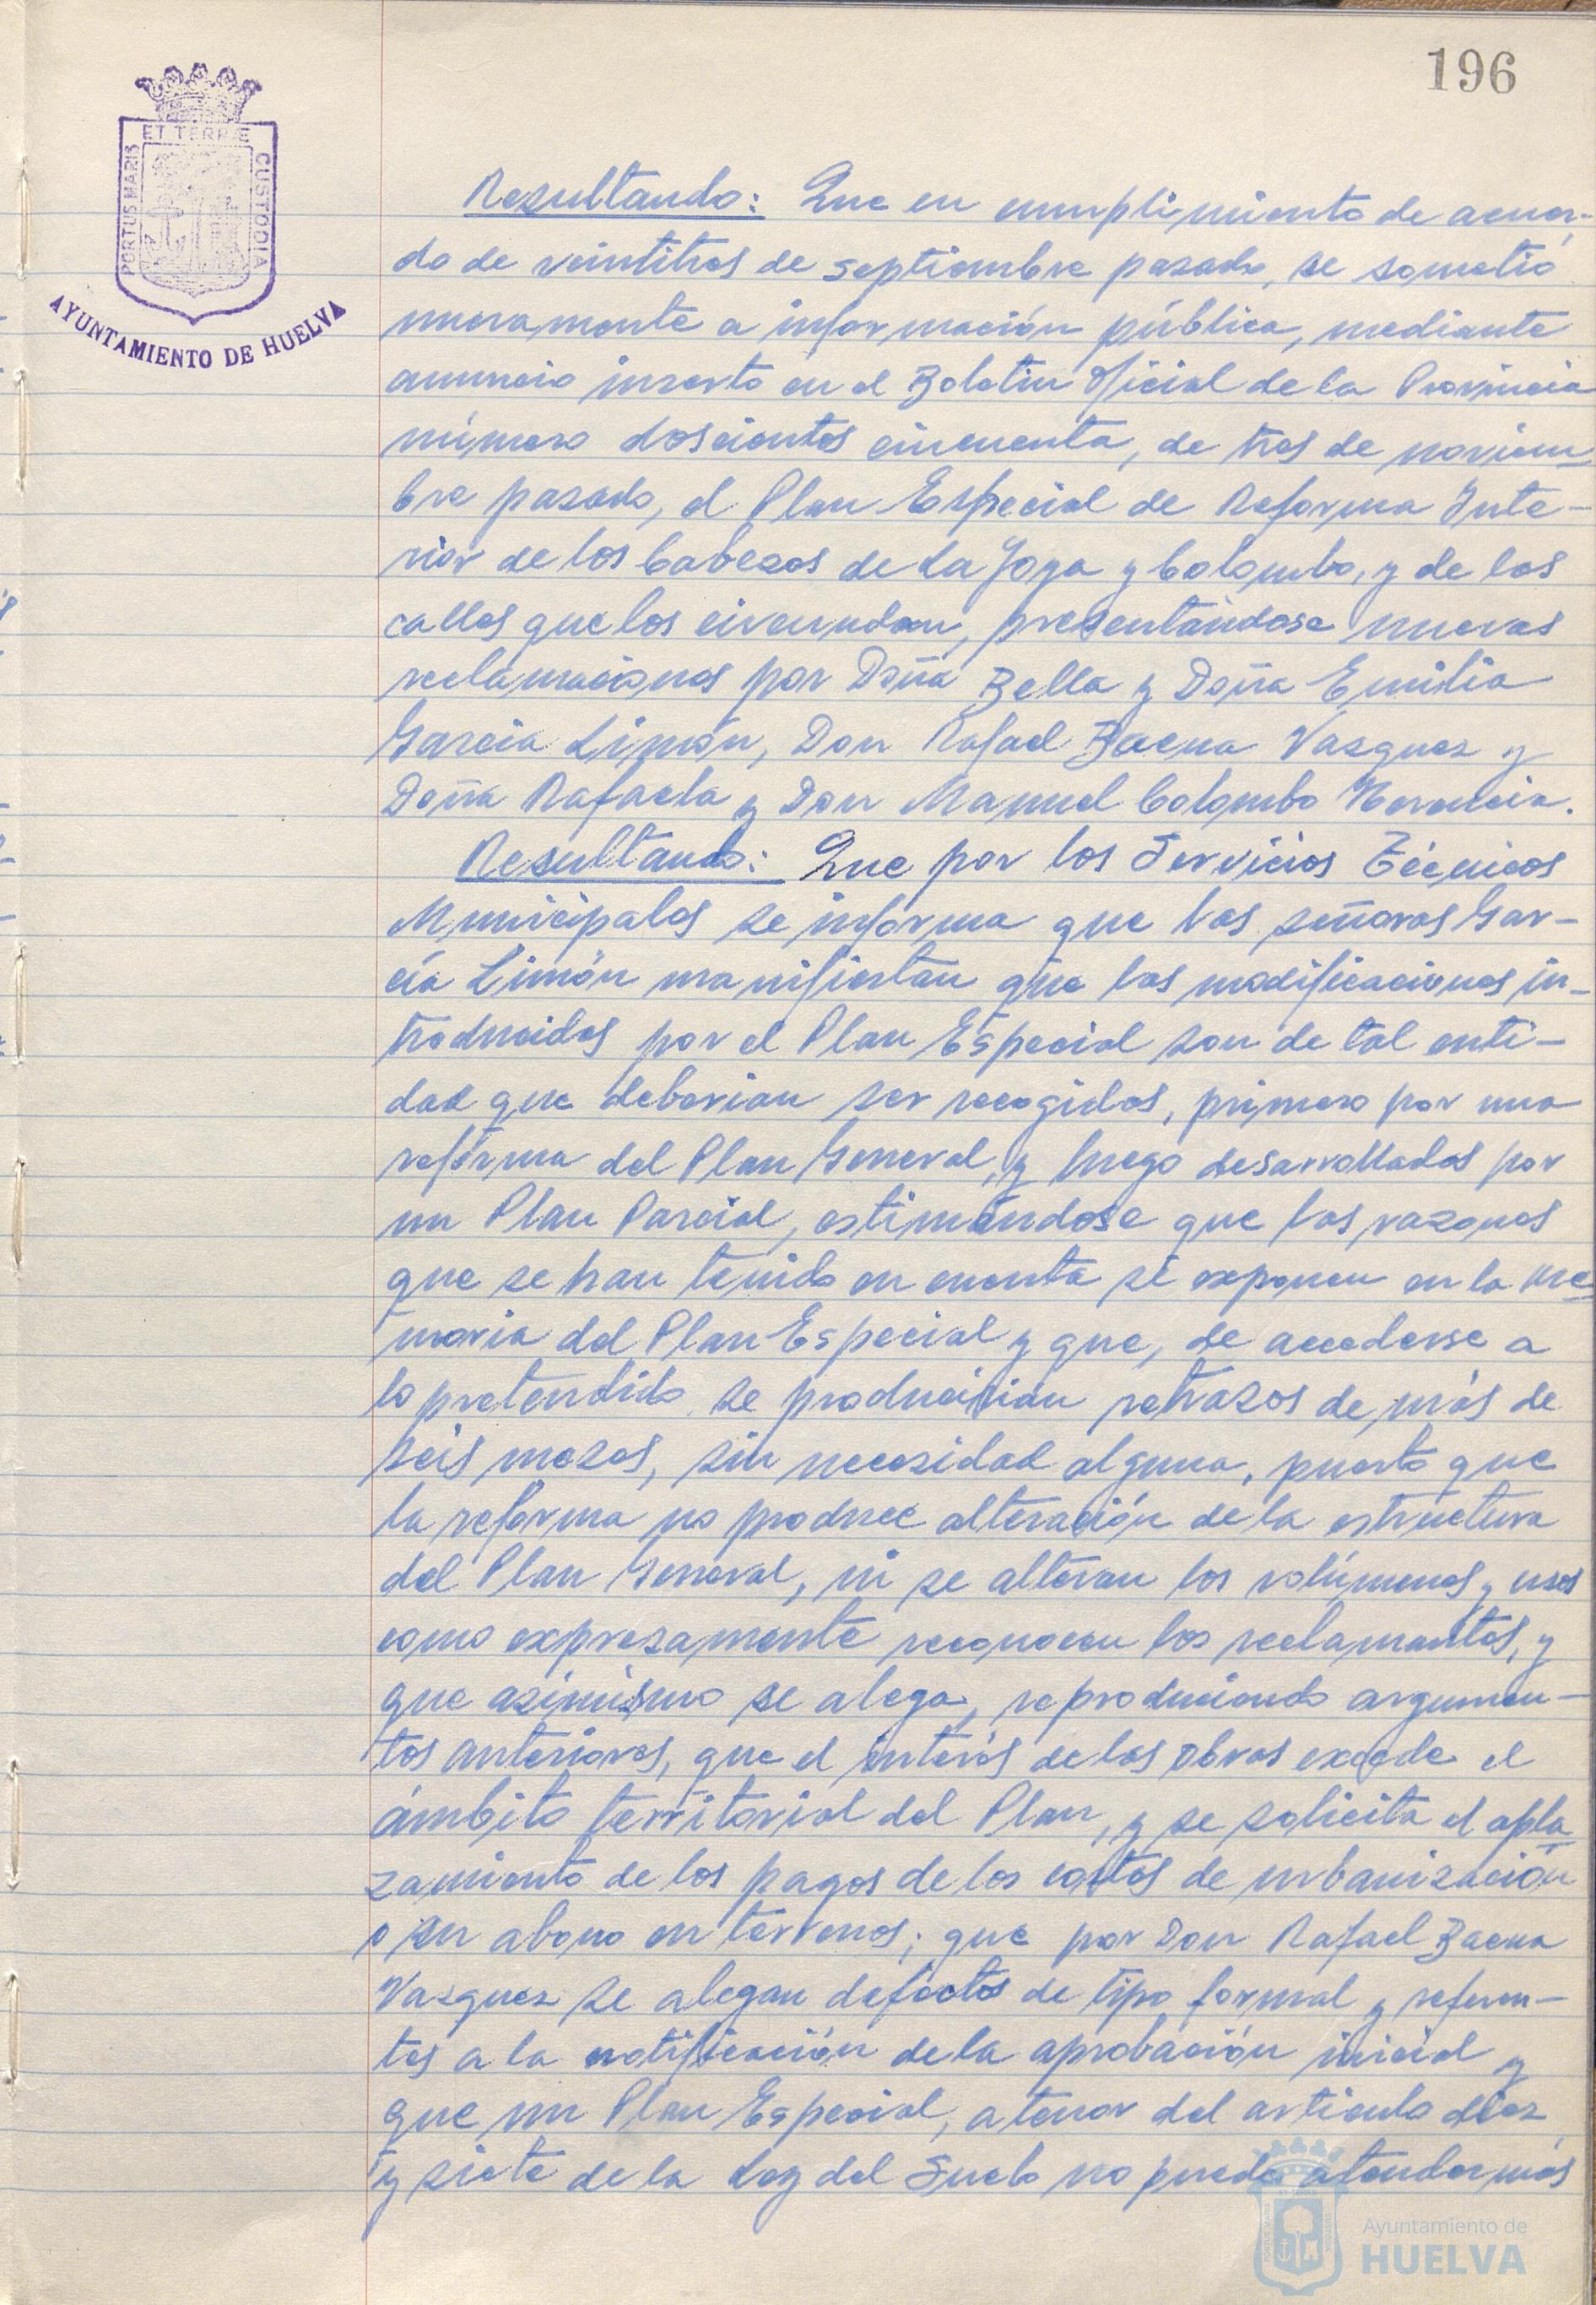 196
PORTUS MARIS ET TERRÆ CUSTODIA
AYUNTAMIENTO DE HUELVA
Resultando: Que en cumplimiento de acuer-
do de veintitres de septiembre pasado, se sometió
nuevamente a información pública, mediante
anuncio inserto en el Boletin Oficial de la Provincia
número doscientos cincuenta, de tres de noviem-
bre pasado, el Plan Especial de Reforma Inte-
rior de los Cabezos de La Joya y Colombo, y de las
calles que los circundan, presentándose nuevas
reclamaciones por Doña Bella y Doña Emilia
Garcia Limón, Don Rafael Baena Vazquez y
Doña Rafaela y Don Manuel Colombo
Resultando: Que por los Servicios Técnicos
Municipales se informa que las señoras Gar-
cía Limón manifiestan que las modificaciones in-
troducidas por el Plan Especial son de tal enti-
dad que deberian ser recogidas, primero por una
reforma del Plan General, y luego desarrolladas por
un Plan Parcial, estimándose que las razones
que se han tenido en cuenta se exponen en la me
moria del Plan Especial y que, de accederse a
lo pretendido, se producirian retrasos de más de
seis meses, sin necesidad alguna, puesto que
la reforma no produce alteración de la estructura
del Plan General, ni se alteran los volúmenes y usos
como expresamente reconocen los reclamantes, y
que asimismo se alega, reproduciendo argumen-
tos anteriores, que el interés de las obras excede el
ámbito territorial del Plan, y se solicita el apla
zamiento de los pagos de los costes de urbanización
o su abono en terrenos; que por Don Rafael Baena
Vazquez se alegan defectos de tipo formal y referen-
tes a la notificación de la aprobación inicial y
que un Plan Especial, a tenor del articulo diez
y siete de la Ley del Suelo no puede atender más
Ayuntamiento de
HUELVA